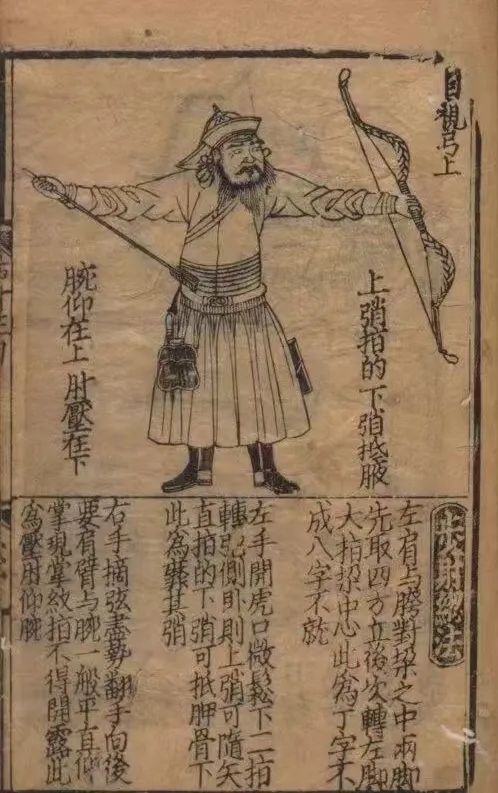 目弓上
上弰指的下弰抵腋
腕仰在上肘壓在下
步射總法
左肩与胯對垛之中兩脚
先取四方立後次轉左脚
大指垛中心此為丁字不
成八字不就
左手開虎口微鬆下二指
轉弝側卧則上弰可隨矢
直指的下弰可抵胛骨下
此為靡其弰
右手摘弦盡勢翻手向後
要肩臂与腕一般平直仰
掌現掌紋指不得開露此
為壓肘仰腕